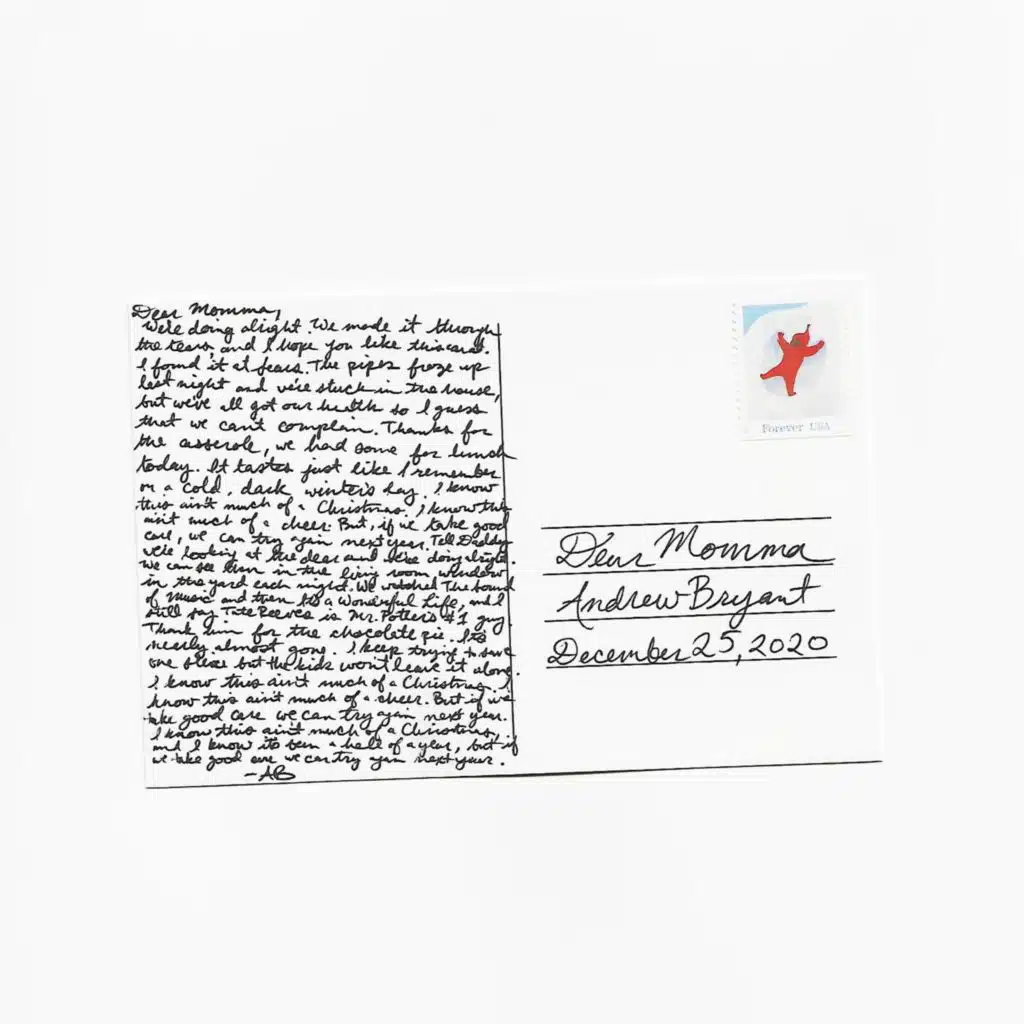 Dear Momma,
We're doing alright. We made it through
the tears, and I hope you like this card.
I found it at fears. The pipes froze up
last night and we're stuck in the house,
but we've all got our health so I guess
that we can't complain. Thanks for
the casserole, we had some for lunch
today. It tastes just like I remember
on a cold, dark winter's day. I know
this ain't much of a Christmas. I know this
ain't much of a cheer. But, if we take good
care, we can try again next year. Tell Daddy
we're looking at the deer and he's doing alright.
We can see him in the living room window
in the yard each night. We watched The Sound
of Music and then It's a Wonderful Life, and I
still say Tate Reeves is Mr. Potter's #1 guy.
Thank him for the chocolate pie. It's
nearly almost gone. I keep trying to save
one slice but the kids won't leave it alone.
I know this ain't much of a Christmas. I
know this ain't much of a cheer. But if we
take good care we can try again next year.
I know this ain't much of a Christmas,
and I know it's been a hell of a year, but if
we take good care we can try again next year.
-AB
Forever USA
Dear Momma
Andrew Bryant
December 25, 2020